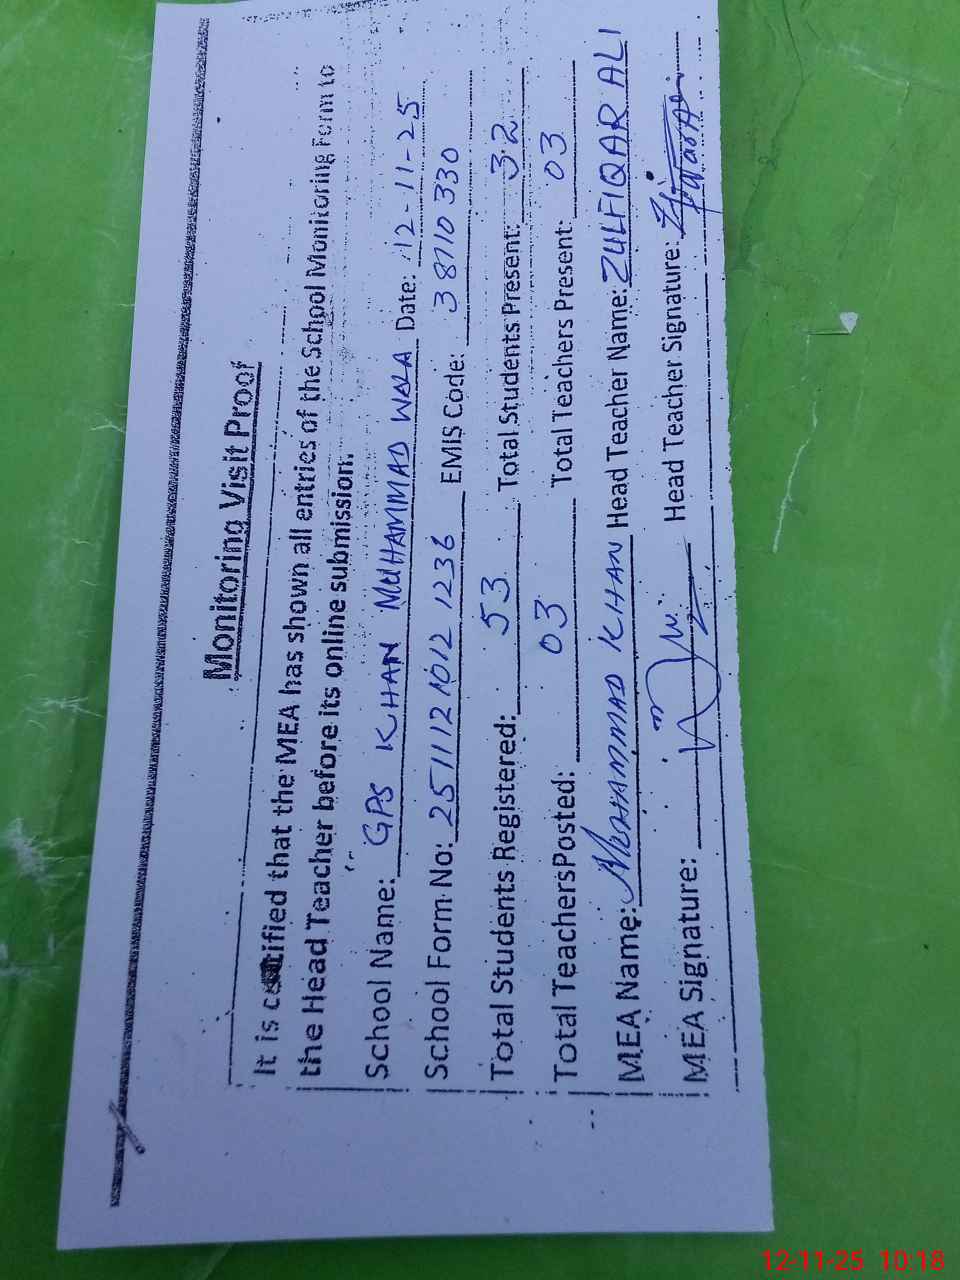 Monitoring Visit Proof
It is certified that the MEA has shown all entries of the School Monitoring Form to
the Head Teacher before its online submission.
School Name: GPS KHAN MUHAMMAD WALA Date: 12-11-25
School Form No: 251112 1012 1236 EMIS Code: 38710330
Total Students Registered: 53 Total Students Present: 32
Total Teachers Posted: 03 Total Teachers Present: 03
MEA Name: MUHAMMAD KHAN Head Teacher Name: ZULFIQAR ALI
MEA Signature: Head Teacher Signature:
12-11-25 10:18